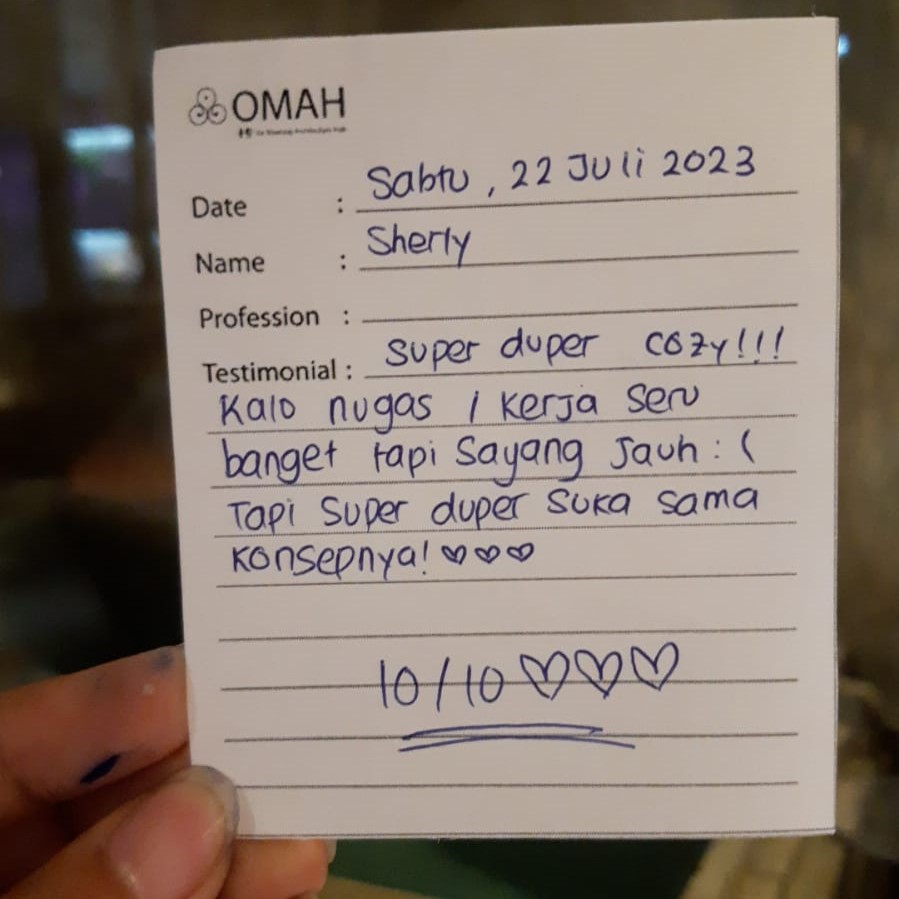 OMAH
Date : Sabtu, 22 Juli 2023
Name : Sherly
Profession :
Testimonial : super duper cozy!!!
Kalo nugas / kerja seru
banget tapi sayang jauh :(
Tapi super duper suka sama
konsepnya! ♡♡♡
10/10 ♡♡♡